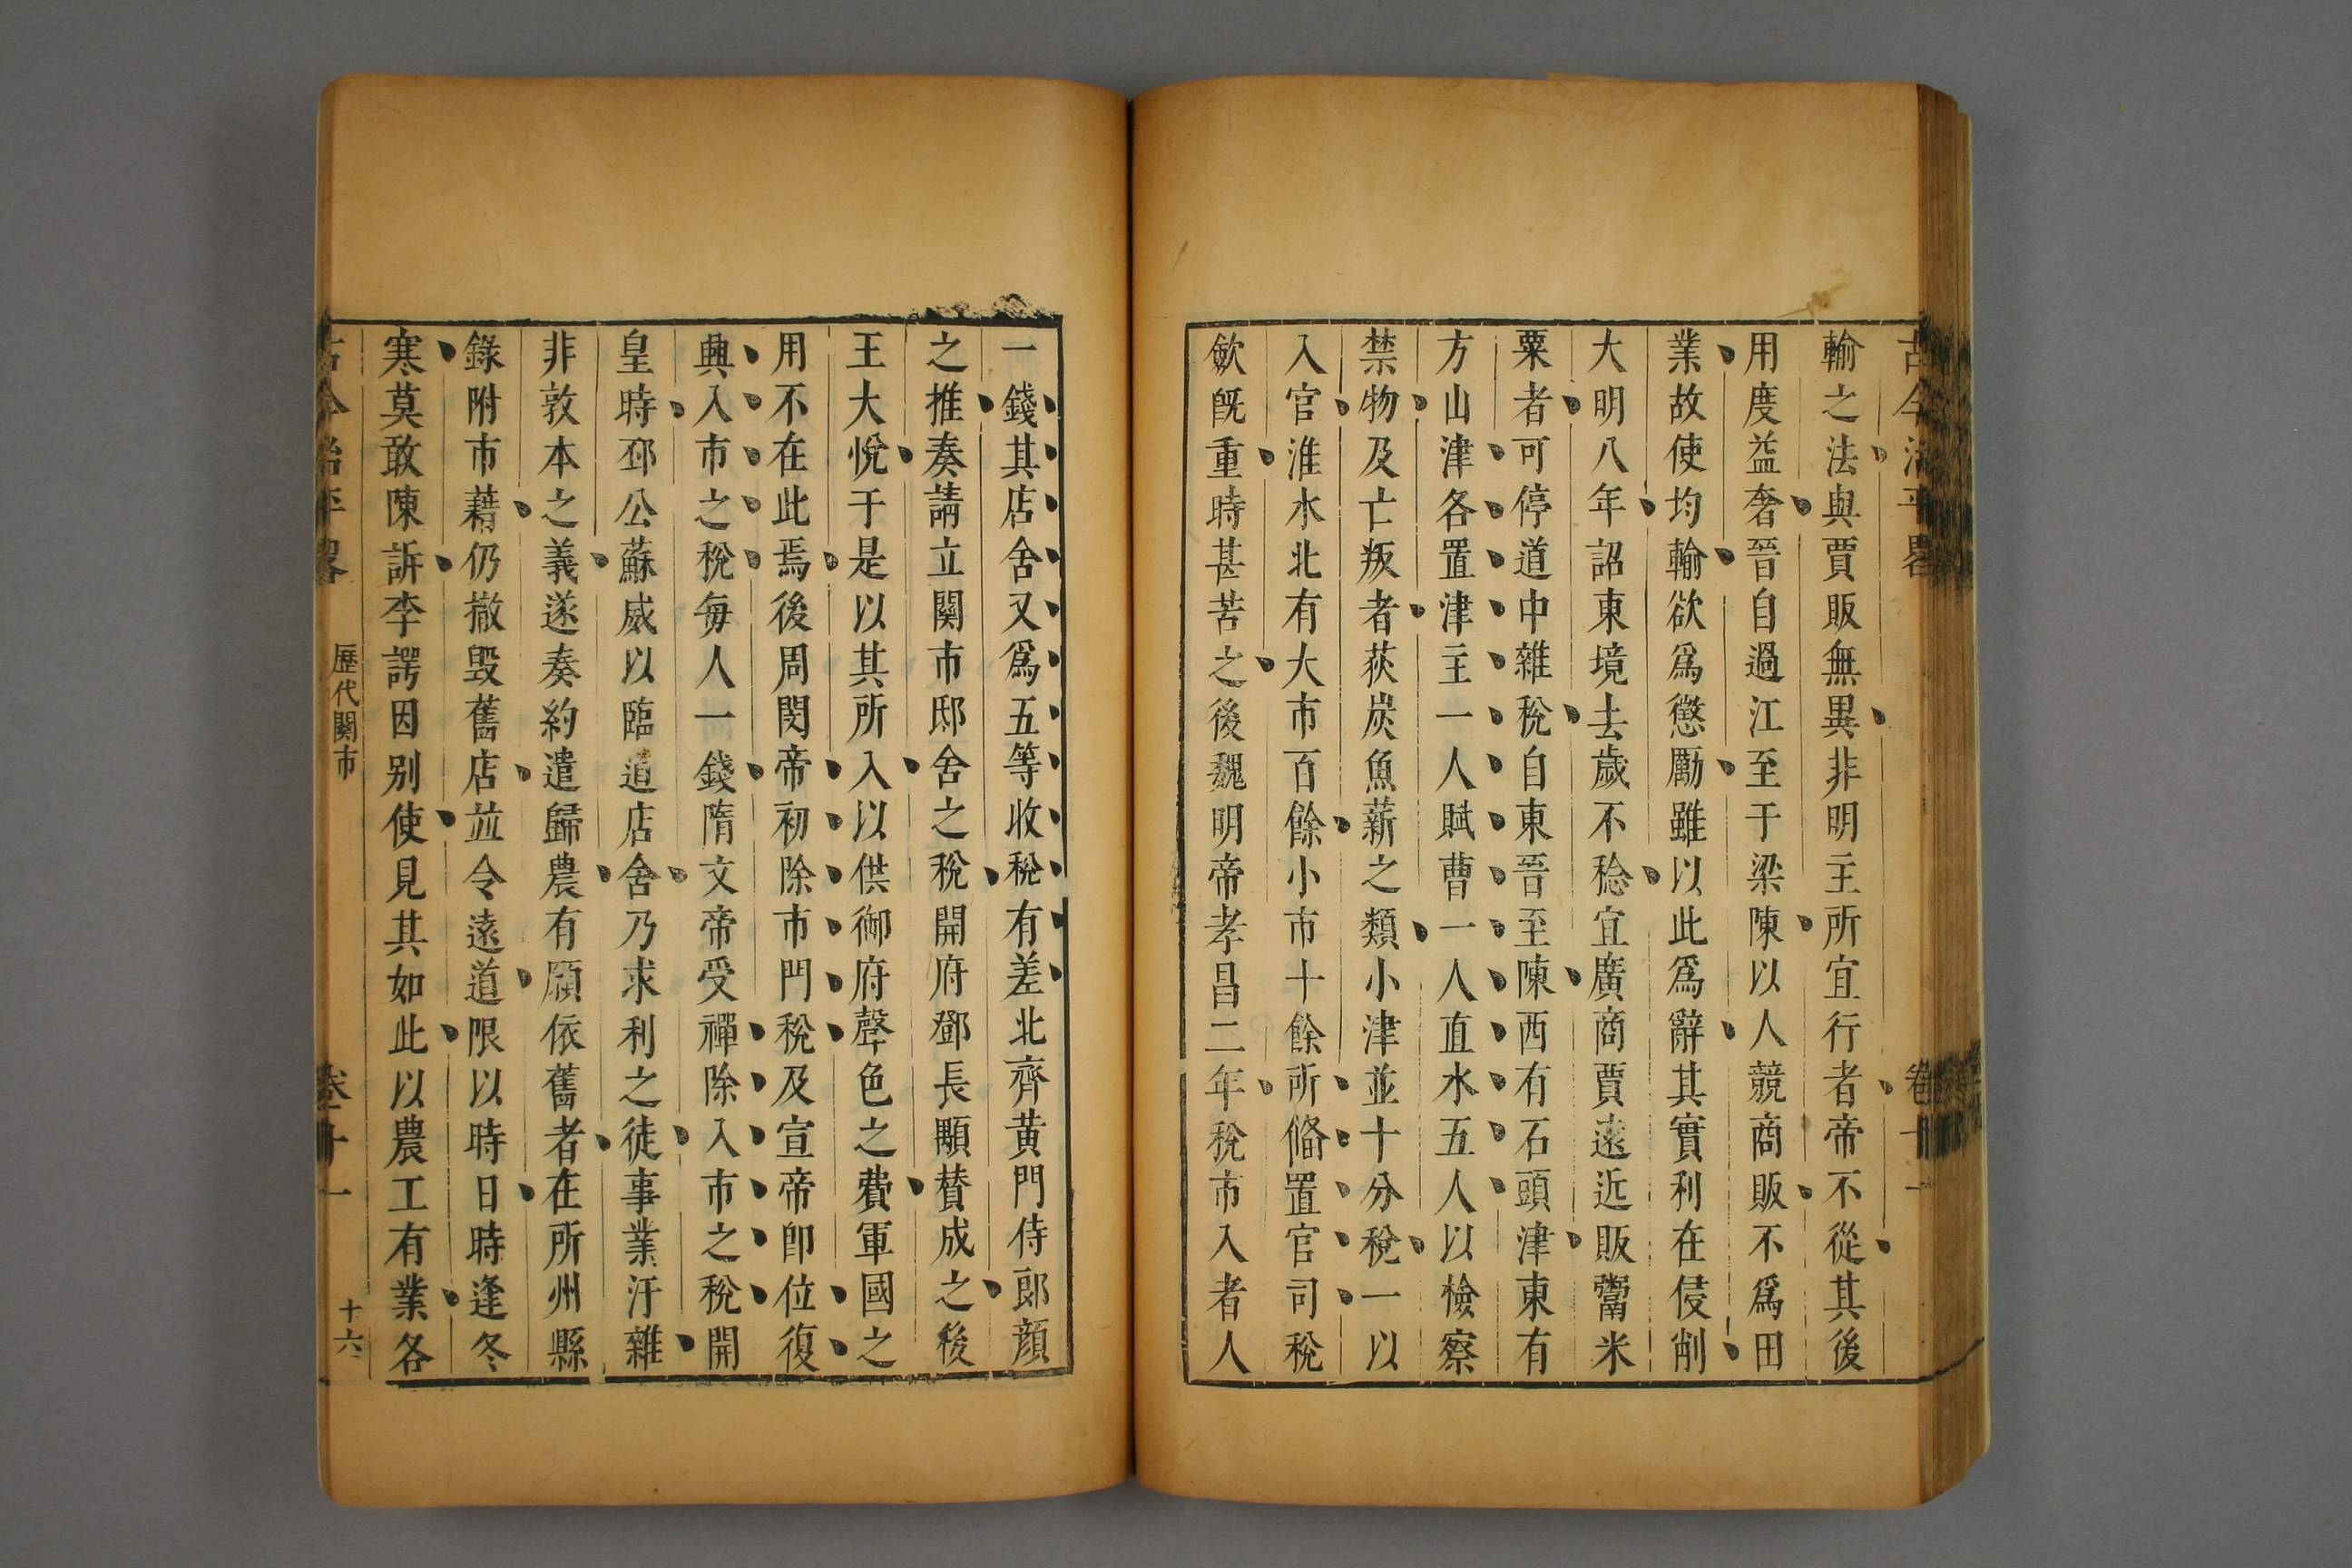 古今治平畧
卷十一
輸之法與賈販無異非明主所宜行者帝不從其後
用度益奢晉自過江至于梁陳以人競商販不爲田
業故使均輸欲爲懲勵雖以此爲辭其實利在侵削
大明八年詔東境去歲不稔宜廣商賈遠近販鬻米
粟者可停道中雜稅自東晉至陳西有石頭津東有
方山津各置津主一人賦曹一人直水五人以檢察
禁物及亡叛者荻炭魚薪之類小津並十分稅一以
入官淮水北有大市百餘小市十餘所俻置官司稅
斂旣重時甚苦之後魏明帝孝昌二年稅市入者人
一錢其店舍又爲五等收稅有差北齊黃門侍郎顔
之推奏請立關市邸舍之稅開府鄧長顒賛成之後
王大悅于是以其所入以供御府聲色之費軍國之
用不在此焉後周閔帝初除市門稅及宣帝卽位復
興入市之稅每人一錢隋文帝受禪除入市之稅開
皇時邳公蘇威以臨道店舍乃求利之徒事業汙雜
非敦本之義遂奏約遣歸農有願依舊者在所州縣
錄附市藉仍撤毀舊店並令遠道限以時日時逢冬
寒莫敢陳訴李諤因别使見其如此以農工有業各
古今治平畧
歷代關市
卷十一
十六